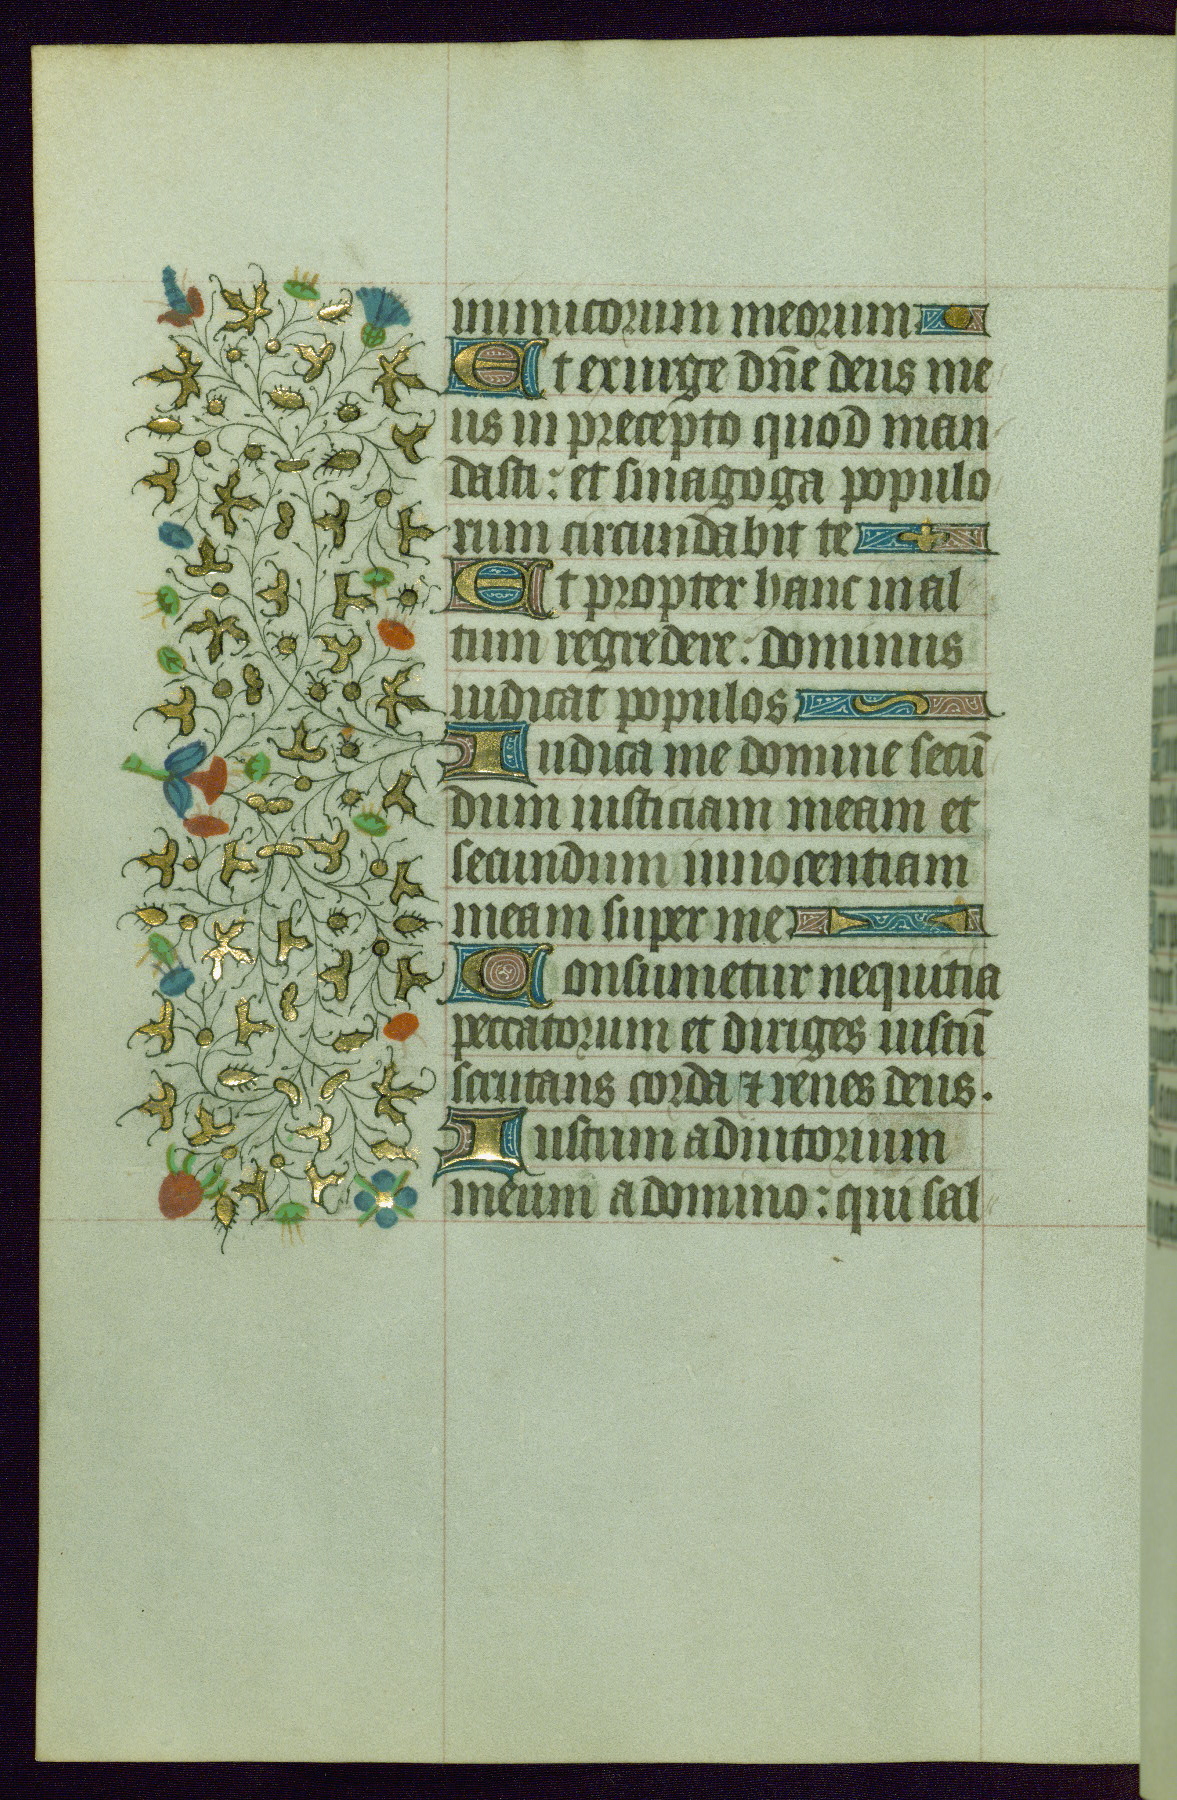 inimicorum meorum
Et exurge dn̄e deus me
us in precepto quod man
dasti: et sinagoga populo
rum circundabit te
Et propter hanc in al
tum regredere: dominus
iudicat populos
Iudica me domine secū
dum iusticiam meam et
secundum innocentiam
meam super me
Consumetur nequitia
peccatorum et diriges iustū
scrutans corda ⁊ renes deus.
Iustum adiutorium
meum a domino: qui sal